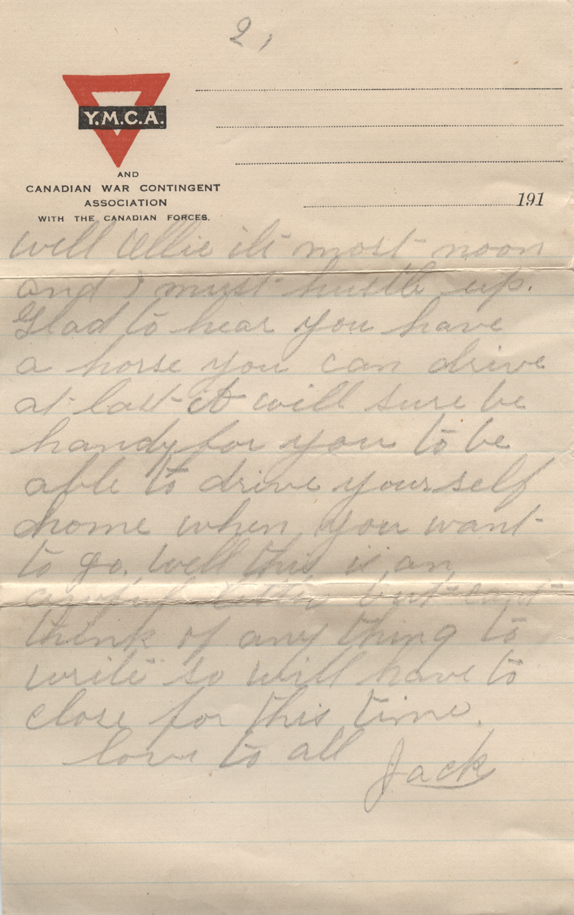 2,
Y.M.C.A.
AND
CANADIAN WAR CONTINGENT
ASSOCIATION
WITH THE CANADIAN FORCES.
191
Well Ellie its most noon
and I must hustle up.
Glad to hear you have
a horse you can drive
at last it will sure be
handy for you to be
able to drive yourself
home when you want
to go. Well this is an
awful letter but cant
think of any thing to
write so will have to
close for this time.
love to all
Jack